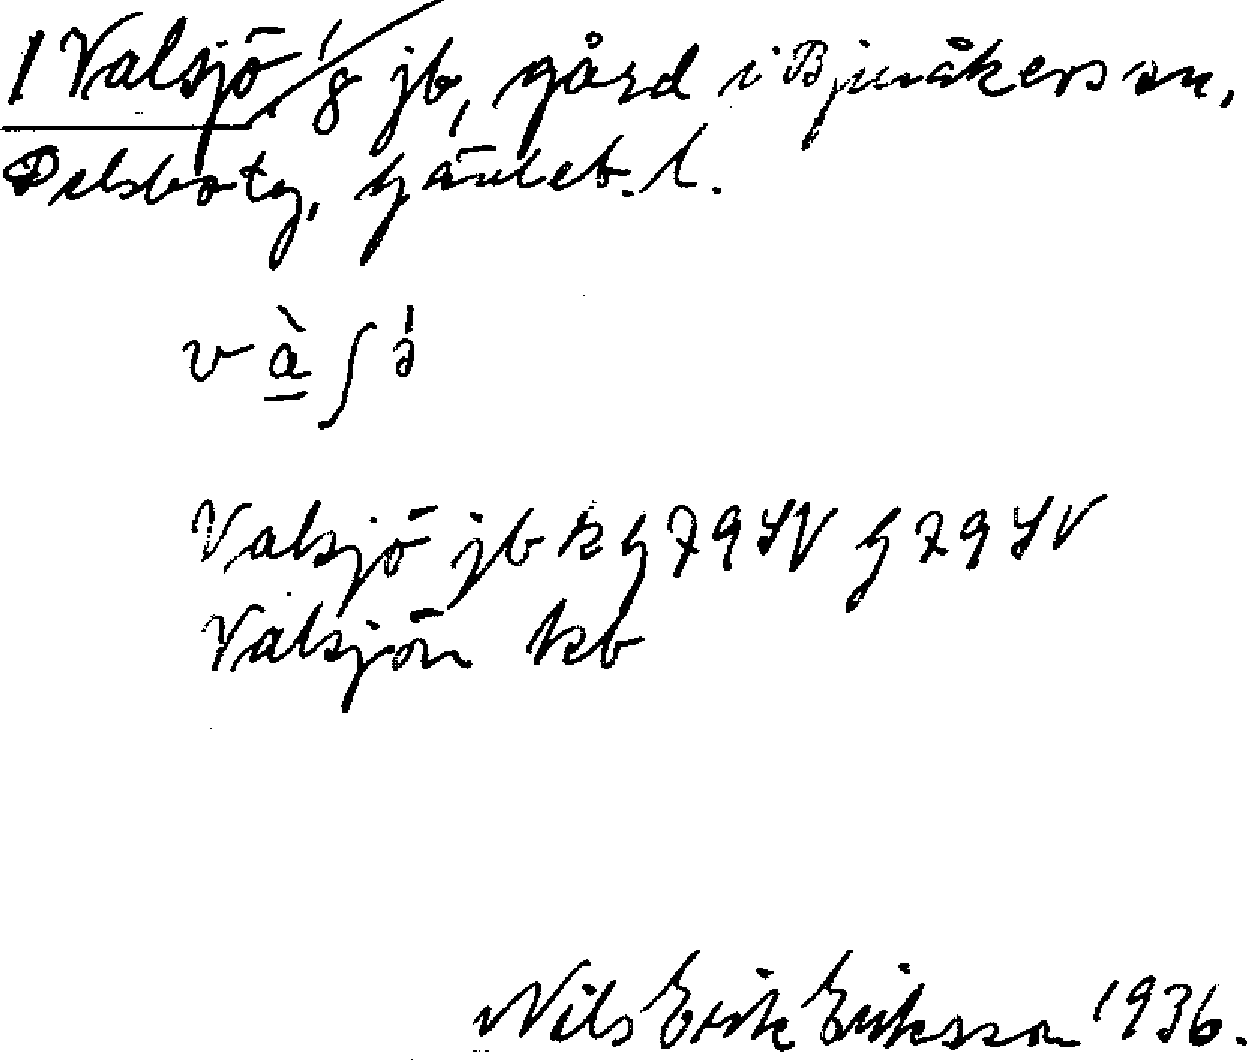 1 Valsjö 1/8 jb, gård i Bjuråkers sn,
Delsbo tg, Gävleb. l.
v à ʃ ə́
Valsjö jb k G 79 SV G 29 SV
Valsjön kb
Nils Erik Eriksson 1936.